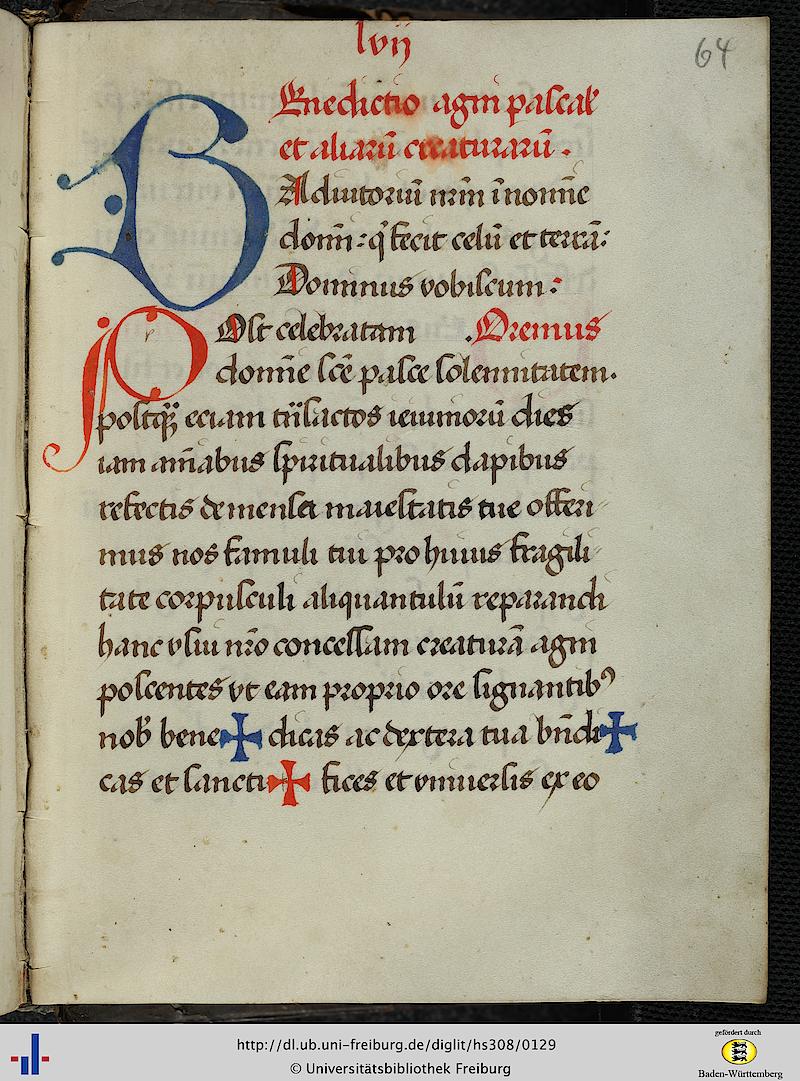 lvij
64
Benedictio agni pascal̛
et aliarū creaturarū .
Adiutoriū nr̄m ī nomīe
domī : q̛ fecit celū et terrā :
Dominus vobiscum :
Post celebratam . Oremus
domīe sc̄e pasce solennitatem .
postq̄ȝ eciam trīsactos ieiuniorū dies
iam aīabus spiritualibus dapibus
refectis de mensa maiestatis tue offeri-
mus nos famuli tui pro huius fragili-
tate corpusculi aliquantulū reparandi
hanc vsui nr̄o concessam creaturā agni
poscentes vt eam proprio ore signantibꝰ
nob̛ bene✠dicas ac dextera tua bn̄di✠
cas et sancti✠fices et vniuersis ex eo
http://dl.ub.uni-freiburg.de/diglit/hs308/0129
© Universitätsbibliothek Freiburg
gefördert durch
Baden-Württemberg